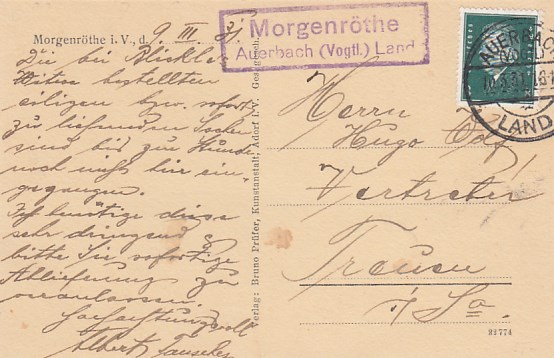 Morgenröthe i. V., d. 9. III. 31.
Morgenröthe
Auerbach (Vogtl.) Land
AUERBACH
10.3.31
LAND
Die bei
bestellten
eiligen bzw. sofort
zu liefernden Sachen
sind bis zur Stunde
noch nicht hier ein-
gegangen.
Ich benötige diese
sehr dringend u.
bitte Sie, sofortige
Ablieferung zu
veranlassen.
Hochachtungsvoll
Albert
Verlag: Bruno Prüfer, Kunstanstalt, Adorf i. V. Ges. gesch.
Herrn
Hugo
Vertreter
Treuen
i/Sa.
32774